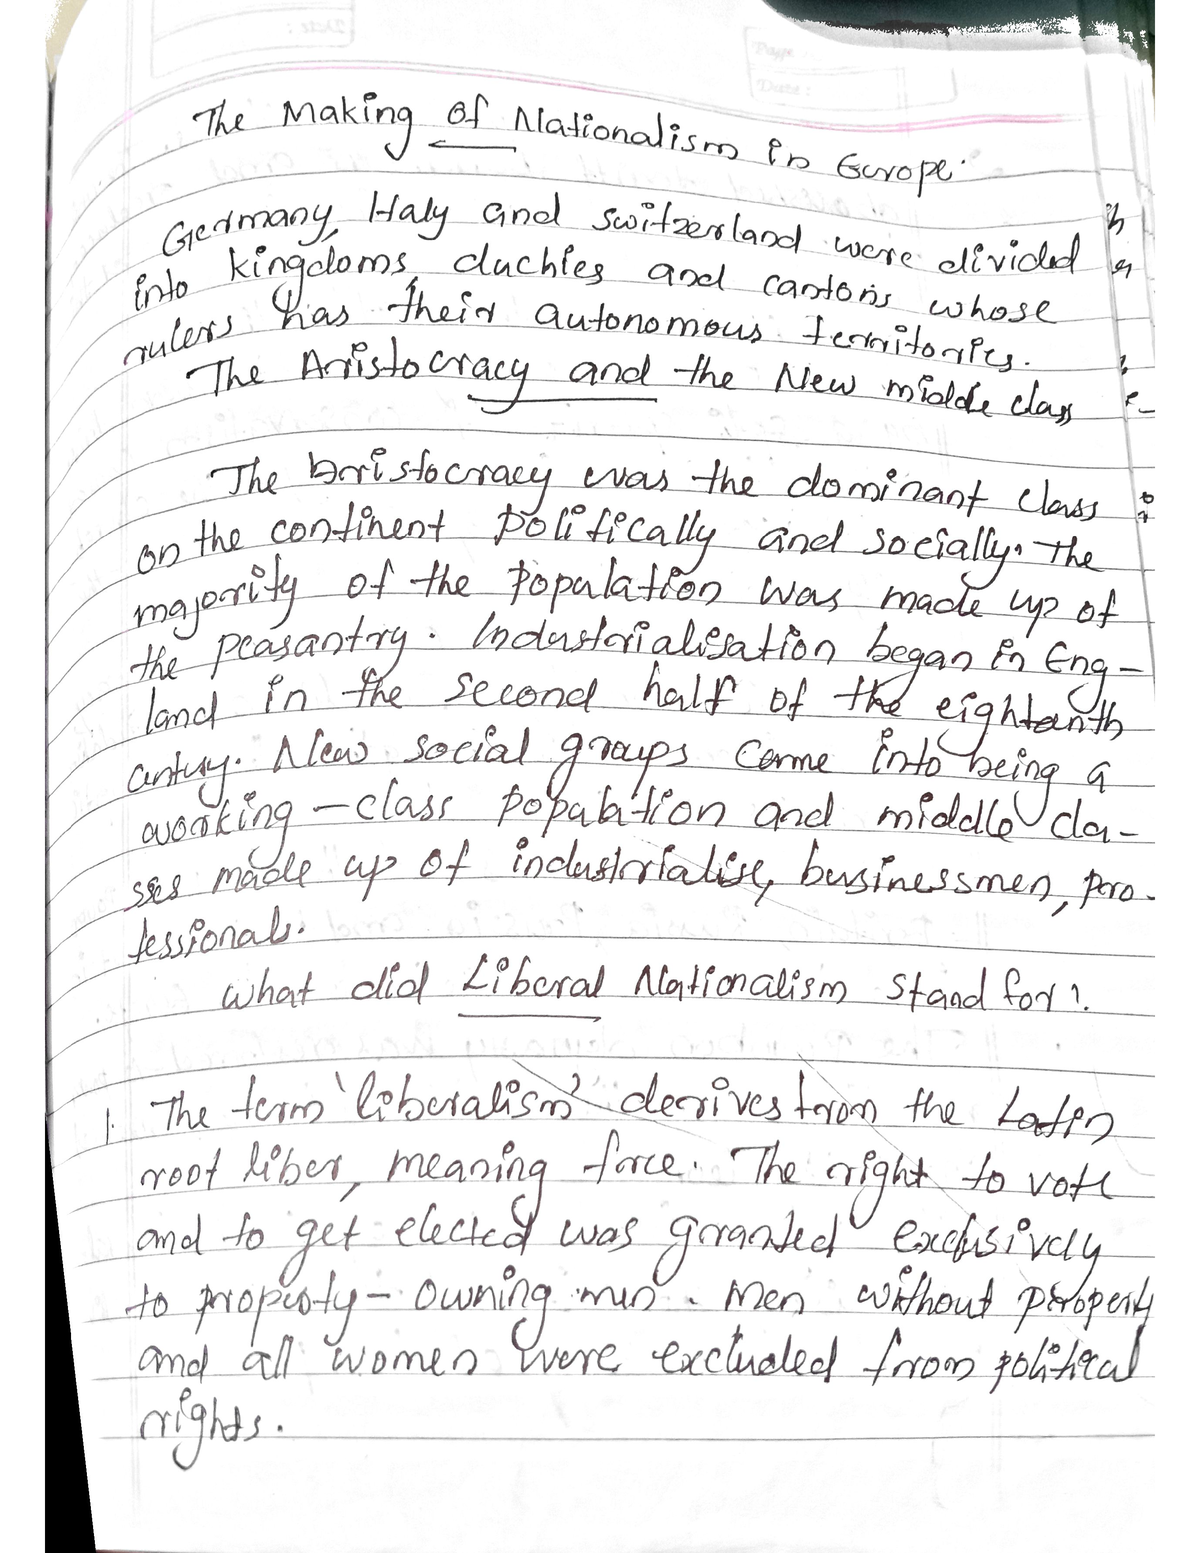 The Making of Nationalism in Europe.
Germany, Italy and switzerland were divided
into kingdoms, duchies and cantons whose
rulers has their autonomous territories.
The Aristocracy and the New middle class
The Aristocracy was the dominant class
on the continent politically and socially. The
majority of the population was made up of
the peasantry. Industrialisation began in Eng-
land in the second half of the eighteenth
century. New social groups came into being a
working-class population and middle cla-
sses made up of industrialise, businessmen, pro-
fessionals.
What did Liberal Nationalism stand for?
1. The term 'liberalism' derives from the Latin
root liber, meaning force. The right to vote
and to get elected was granted exclusively
to property-owning men. Men without property
and all women were excluded from political
rights.